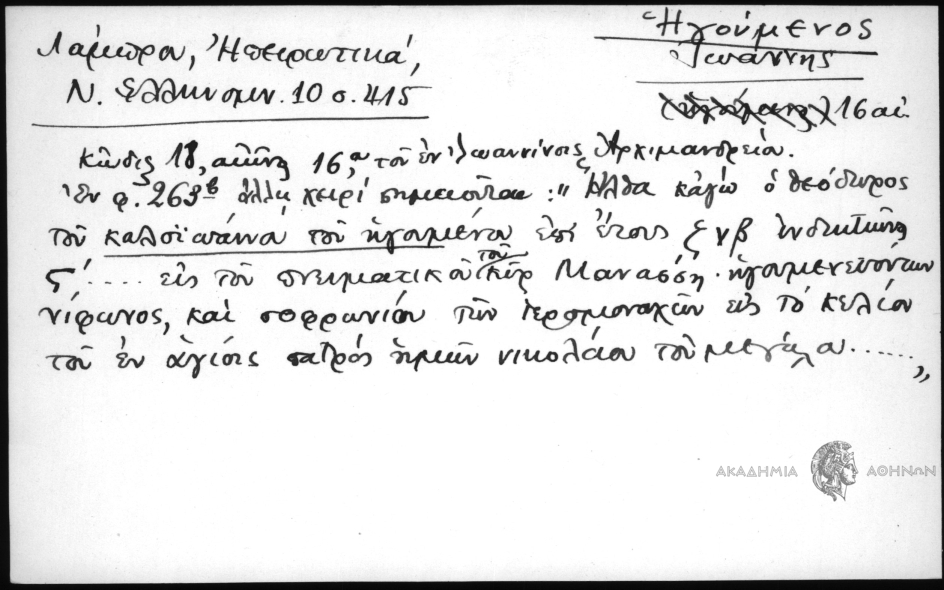 Ἡγούμενος
Ἰωάννης
Λάμπρου, Ἠπειρωτικά,
Ν. Ἑλληνομν. 10 σ. 415
16 αἰ.
Κῶδιξ 18, αἰῶνος 16, τοῦ ἐν Ἰωαννίνοις Ἀρχιμανδρείου.
Ἐν φ. 263β ἄλλῃ χειρὶ σημειοῦται: "Ἦλθα κἀγὼ ὁ θεόδωρος
τοῦ καλοϊωάννου τοῦ ἡγουμένου ἐπὶ ἔτους ζνβ ἰνδικτιῶνος
ς΄..... εἰς τοῦ πνευματικοῦ τοῦ κὺρ Μανασσῆ. ἡγουμενευόντων
νίφωνος, καὶ σοφρωνίου τῶν ἱερομονάχων εἰς τὸ κελίον
τοῦ ἐν ἁγίοις πατρὸς ἡμῶν νικολάου τοῦ μεγάλου......"
ΑΚΑΔΗΜΙΑ ΑΘΗΝΩΝ